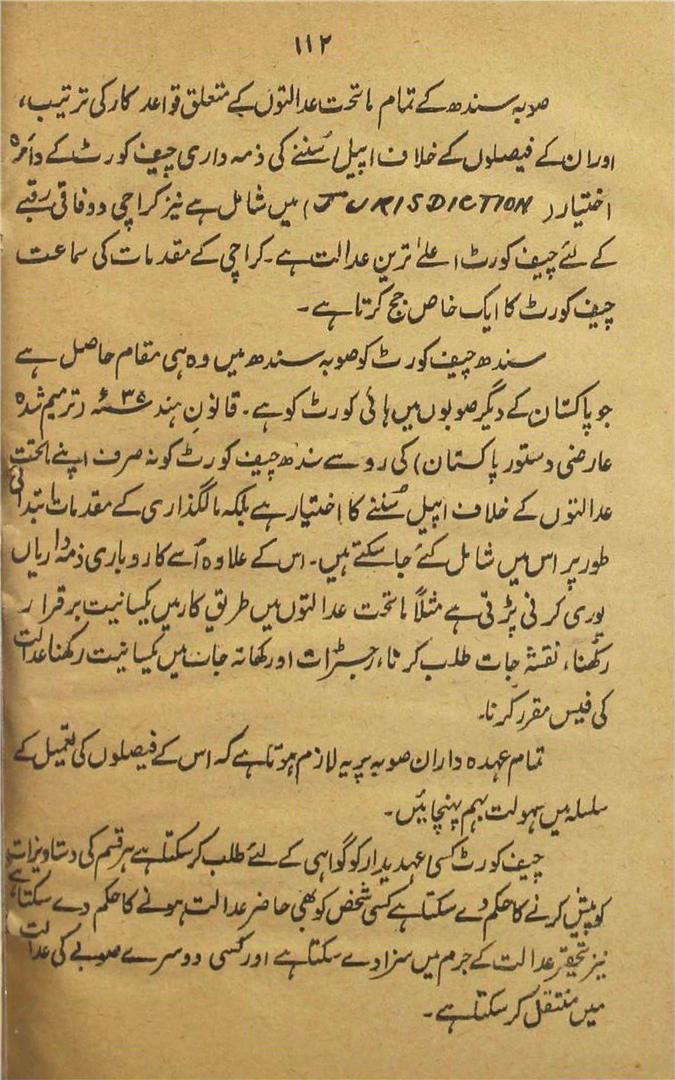 ۱۱۲
صوبہ سندھ کے تمام ماتحت عدالتوں کے متعلق قواعد کار کی ترتیب،
اور ان کے فیصلوں کے خلاف اپیل سُننے کی ذمہ داری چیف کورٹ کے دائرہ
اختیار (JURISDICTION) میں شامل ہے نیز کراچی ووفاقی رقبے
کے لئے چیف کورٹ اعلےٰ ترین عدالت ہے۔ کراچی کے مقدمات کی سماعت
چیف کورٹ کا ایک خاص جج کرتا ہے۔
سندھ چیف کورٹ کو صوبہ سندھ میں وہ ہی مقام حاصل ہے
جو پاکستان کے دیگر صوبوں میں ہائی کورٹ کو ہے۔ قانونِ ہند ۳۵ء (ترمیم شدہ
عارضی دستور پاکستان) کی رو سے سندھ چیف کورٹ کو نہ صرف اپنے ماتحت
عدالتوں کے خلاف اپیل سُننے کا اختیار ہے بلکہ مالگذاری کے مقدمات ابتدائی
طور پر اس میں شامل کئے جا سکتے ہیں۔ اس کے علاوہ اُسے کاروباری ذمہ داریاں
پوری کرنی پڑتی ہے مثلاً ماتحت عدالتوں میں طریق کار میں یکسانیت برقرار
رکھنا، نقشۂ جات طلب کرنا، رجسٹرات اور کھاتہ جات میں یکسانیت رکھنا عدالت
کی فیس مقرر کرنا۔
تمام عہدہ داران صوبہ پر یہ لازم ہوتا ہے کہ اس کے فیصلوں کی تعمیل کے
سلسلہ میں سہولت بہم پہنچائیں۔
چیف کورٹ کسی عہدیدار کو گواہی کے لئے طلب کر سکتا ہے ہر قسم کی دستاویزات
کو پیش کرنے کا حکم دے سکتا ہے کسی شخص کو بھی حاضر عدالت ہونے کا حکم دے سکتا ہے
نیز تحقیر عدالت کے جرم میں سزا دے سکتا ہے اور کسی دوسرے صوبے کی عدالت
میں منتقل کر سکتا ہے۔